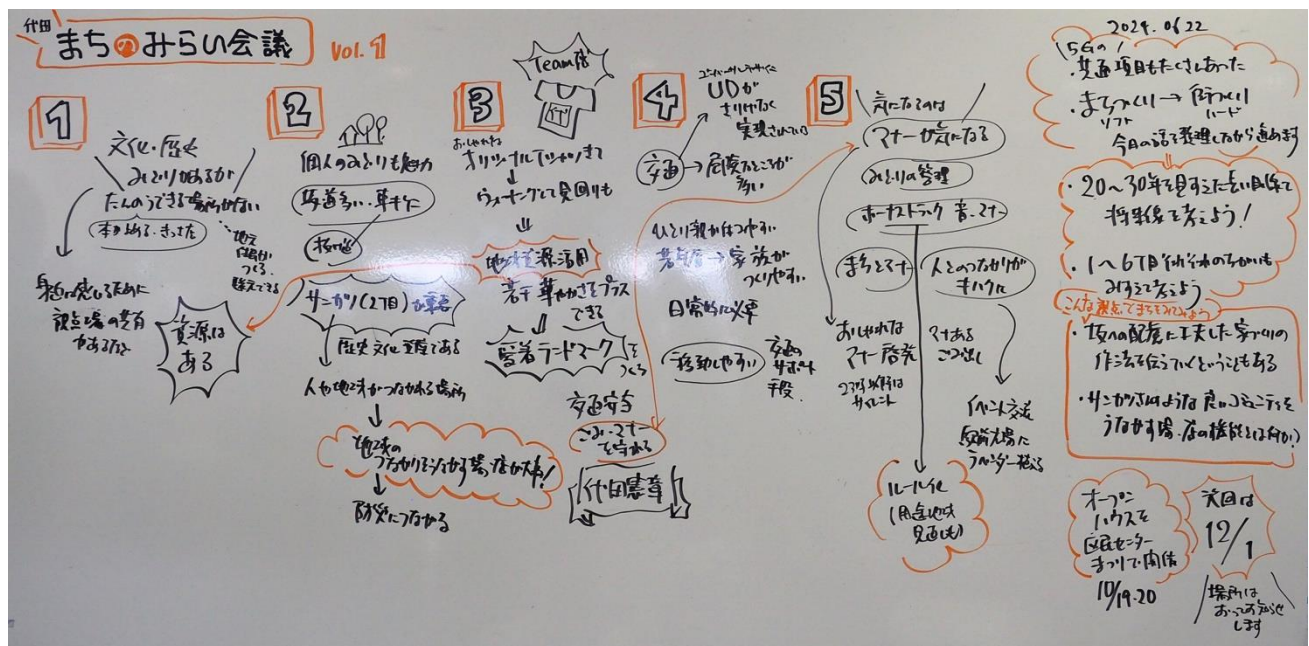 代田
まちのみらい会議 Vol.1
1
文化・歴史
みどりがあるが
たんのうできる場所がない
身近に感じるために
視点場の共有
資源は
ある
2
個人のみどりも魅力
坂道多い、車キケン
サンガツ(2丁目)が重要
歴史文化
人や地域がつながれる場所
地域の
つながりをうながす場・店が大事!
防災につながる
3
Team代
代
おしゃれな
オリジナルTシャツきて
ウォーキングして見回りも
地域資源活用
若干華やかさをプラス
できる
ランドマークを
つくる
交通安全
ごみ・マナー
を守れる
代田憲章
4
ユニバーサルデザイン
UDが
さりげなく
実現されている
交通→危険なところが
多い
ひとり親がはつやすい
若年層→家族が
つくりやすい
日常的に必要
移動しやすい
交通の
サポート
手段
5
気になるのは
マナーが気になる
みどりの管理
ボーナストラック 音、マナー
まちとマナー
人とのつながりが
キハクに
おしゃれな
マナー啓発
23時以降は
サイレント
マナある
ごみ出し
イベント交流
駅前広場に
ラベンダー植える
ルール化
(用途地域
見直しも)
2024.06.22
5Gの
・共通項目もたくさんあった
・まちづくり→街づくり
ソフト ハード
今日の話で整理しながら進めます
・20〜30年を見すえた長い目線で
将来像で考えよう!
・1〜6丁目それぞれのちがいも
みすえて考えよう
こんな視点でまちをみてみよう
・坂への配慮に工夫した家づくりの
作法を伝えていくということもある
・サンガツさんのような良いコミュニティを
うながす場、店の機能とは何か?
オープン
ハウスを
区民センター
まつりで開催
10/19.20
次回は
12/1
場所は
おってお知らせ
します